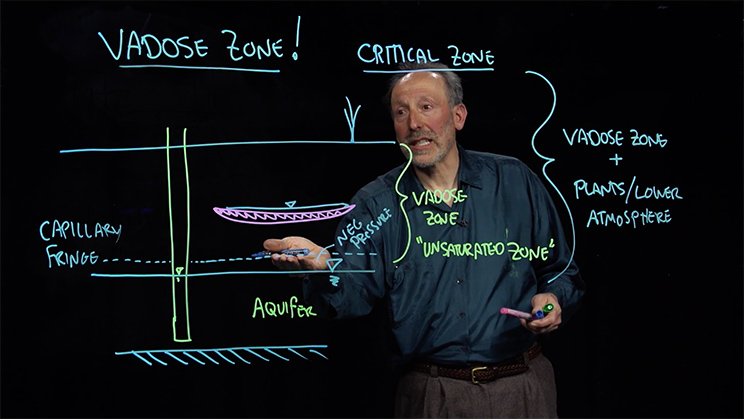 VADOSE ZONE!
CRITICAL ZONE
VADOSE ZONE
+
PLANTS/LOWER
ATMOSPHERE
VADOSE
ZONE
"UNSATURATED ZONE"
NEG.
PRESSURE
CAPILLARY
FRINGE
AQUIFER